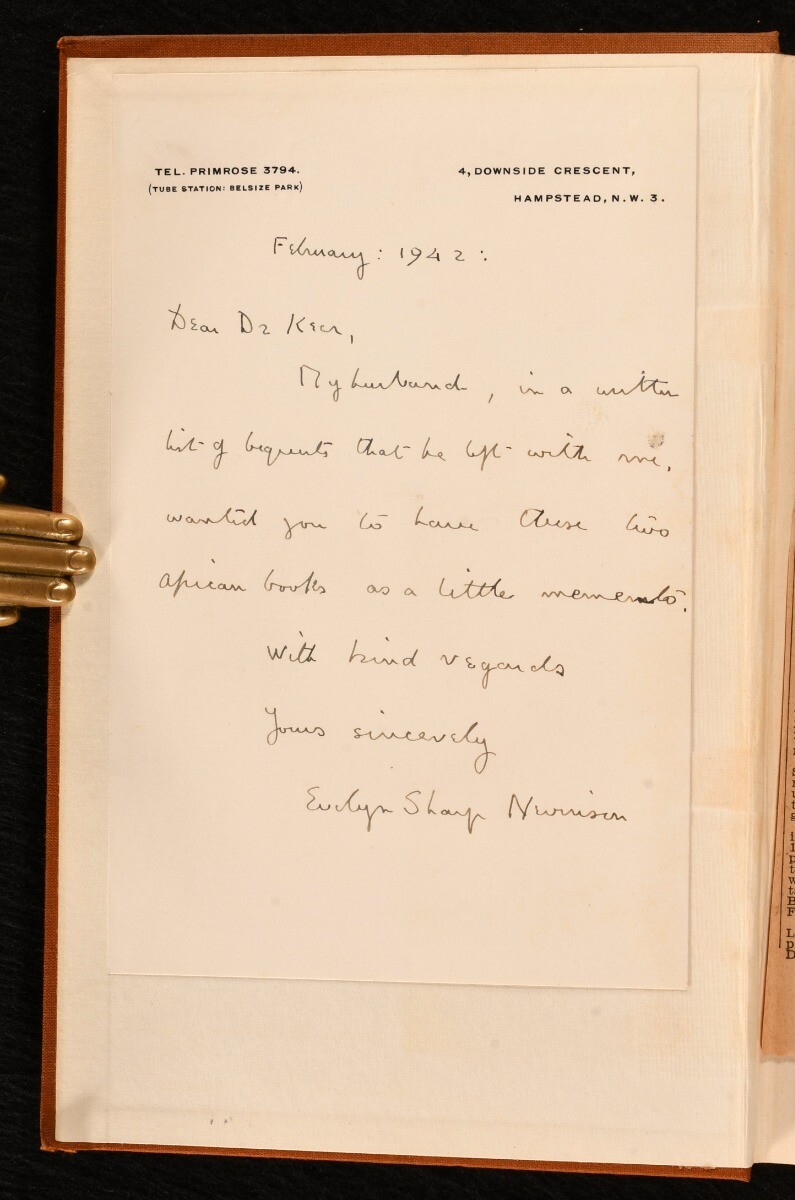 TEL. PRIMROSE 3794.
(TUBE STATION: BELSIZE PARK)
4, DOWNSIDE CRESCENT,
HAMPSTEAD, N.W. 3.
February: 1942:
Dear Dr Kerr,
My husband, in a written
list of bequests that he left with me,
wanted you to have these two
African books as a little memento.
With kind regards
Yours sincerely
Evelyn Sharp Nevinson